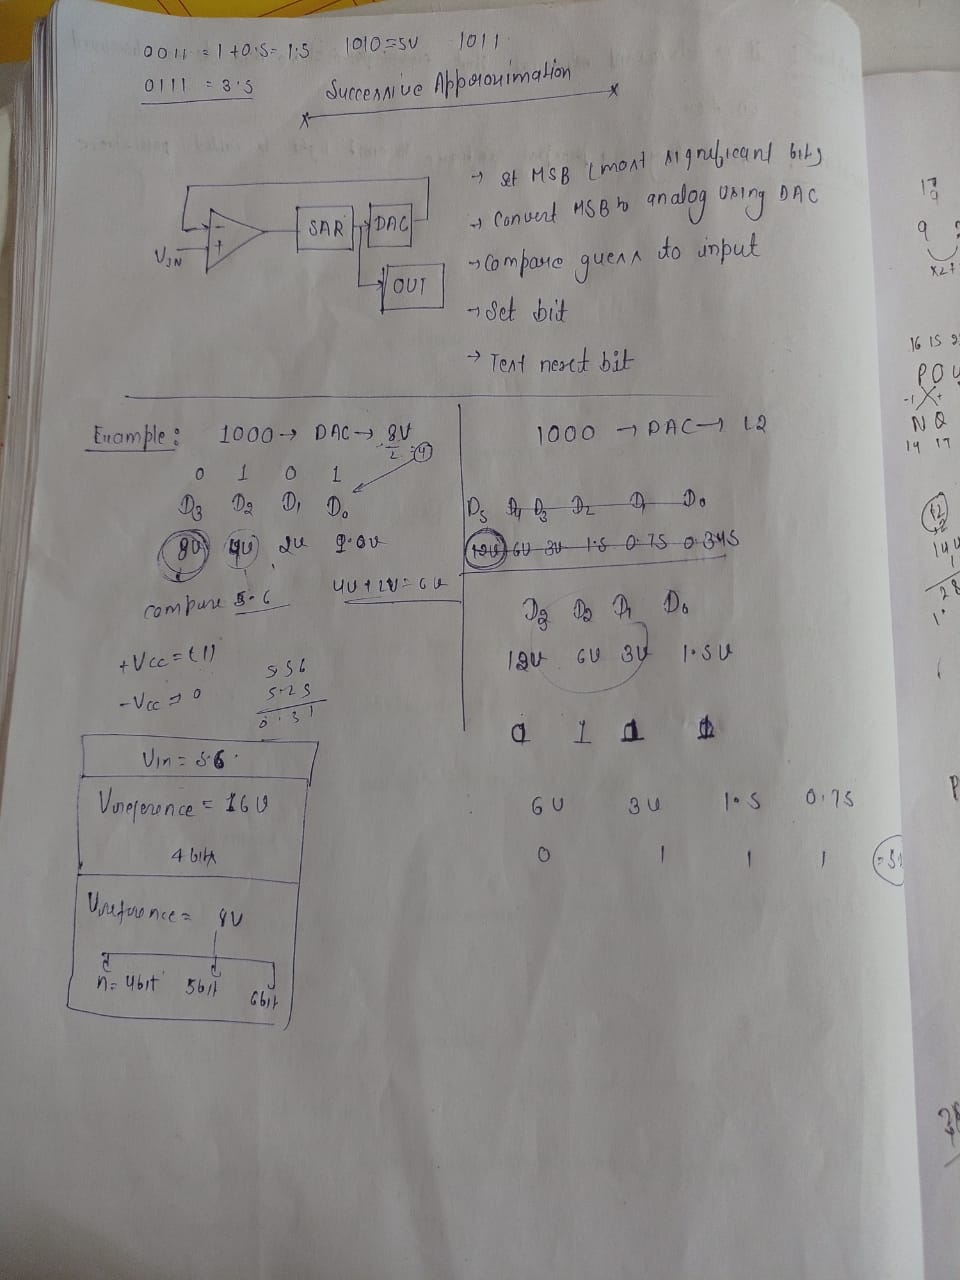 0011 = 1+0.5 = 1.5 1010 = 5V 1011
0111 = 3.5
Successive Approximation
→ set MSB (most significant bit)
→ Convert MSB to analog using DAC
→ Compare guess to input
→ Set bit
→ Test next bit
VIN
-
+
SAR
DAC
OUT
Example: 1000 → DAC → 8V
0 1 0 1
D3 D2 D1 D0
8V 4V 2V
compare 5.6
4V+2V = 6V
+Vcc = (1)
-Vcc → 0
5.56
5.25
0.31
Vin = 5.6
Vreference = 16V
4 bits
Vreference = 8V
n = 4bit 5bit 6bit
1000 → DAC → 12
D5 D4 D3 D2 D1 D0
12V 6V 3V 1.5 0.75 0.345
D3 D2 D1 D0
12V 6V 3V 1.5V
1
6V 3V 1.5 0.75
0 1 1 1
9
16 15
POU
NQ
14 17